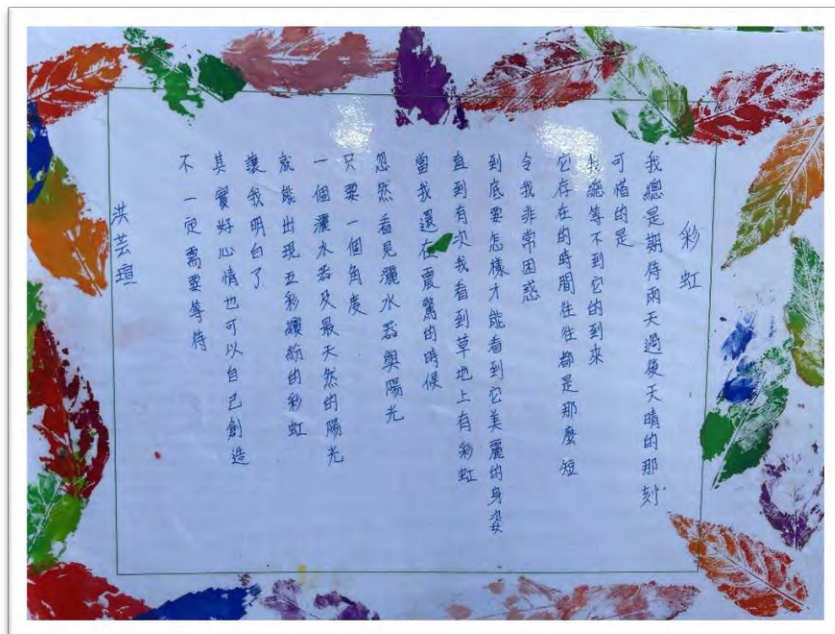 彩虹
我總是期待雨天過後天晴的那刻
可惜的是
我總等不到它的到來
它存在的時間往往都是那麼短
令我非常困惑
到底要怎樣才能看到它美麗的身姿
直到有次我看到草地上有彩虹
當我還在震驚的時候
忽然看見灑水器與陽光
只要一個角度
一個灑水器及最天然的陽光
就能出現五彩繽紛的彩虹
讓我明白了
其實好心情也可以自己創造
不一定需要等待
洪芸瑄